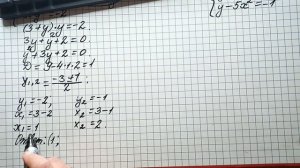 y-5x²=-1
(3+y)·y=-2.
3y+y²+2=0
y²+3y+2=0.
D=9-4·1·2=1
y₁,₂=\frac{-3±1}{2};
y₁=-2, y₂=-1
x₁=3-2 x₂=3-1
x₁=1 x₂=2.
Ответ: (1;